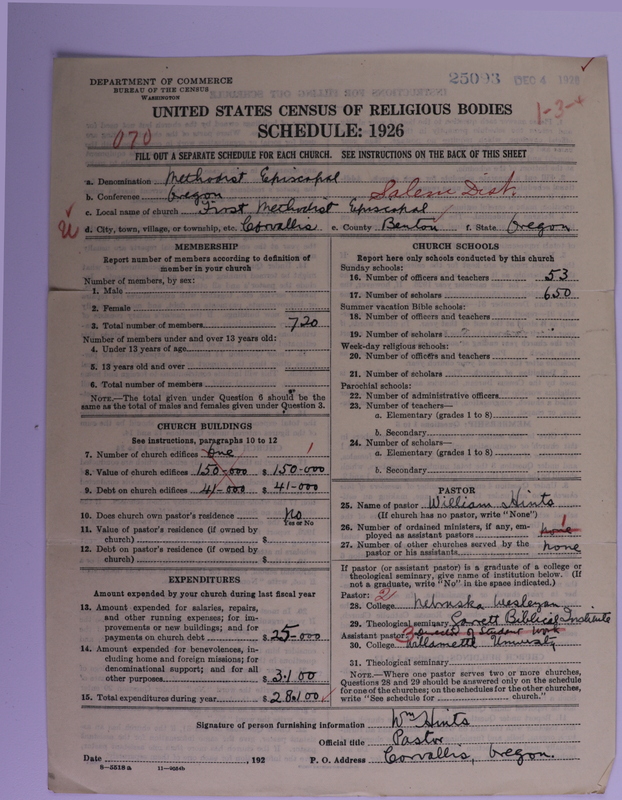 25093 DEC 4 1928
DEPARTMENT OF COMMERCE
BUREAU OF THE CENSUS
WASHINGTON
UNITED STATES CENSUS OF RELIGIOUS BODIES
1-3-4
SCHEDULE: 1926
070
FILL OUT A SEPARATE SCHEDULE FOR EACH CHURCH. SEE INSTRUCTIONS ON THE BACK OF THIS SHEET
a. Denomination Methodist Episcopal
b. Conference Oregon Salem Dist.
c. Local name of church First Methodist Episcopal
d. City, town, village, or township, etc. Corvallis e. County Benton f. State Oregon
MEMBERSHIP
Report number of members according to definition of
member in your church
Number of members, by sex:
1. Male
2. Female
3. Total number of members 720
Number of members under and over 13 years old:
4. Under 13 years of age
5. 13 years old and over
6. Total number of members
NOTE.—The total given under Question 6 should be the
same as the total of males and females given under Question 3.
CHURCH BUILDINGS
See instructions, paragraphs 10 to 12
7. Number of church edifices One 1
8. Value of church edifices 150-000 $ 150-000
9. Debt on church edifices 41-000 $ 41-000
10. Does church own pastor's residence No
Yes or No
11. Value of pastor's residence (if owned by
church) $
12. Debt on pastor's residence (if owned by
church) $
EXPENDITURES
Amount expended by your church during last fiscal year
13. Amount expended for salaries, repairs,
and other running expenses; for im-
provements or new buildings; and for
payments on church debt $ 25-000
14. Amount expended for benevolences, in-
cluding home and foreign missions; for
denominational support; and for all
other purposes $ 3100
15. Total expenditures during year $ 28100
CHURCH SCHOOLS
Report here only schools conducted by this church
Sunday schools:
16. Number of officers and teachers 53
17. Number of scholars 650
Summer vacation Bible schools:
18. Number of officers and teachers
19. Number of scholars
Week-day religious schools:
20. Number of officers and teachers
21. Number of scholars
Parochial schools:
22. Number of administrative officers
23. Number of teachers—
a. Elementary (grades 1 to 8)
b. Secondary
24. Number of scholars—
a. Elementary (grades 1 to 8)
b. Secondary
PASTOR
25. Name of pastor William Hints
(If church has no pastor, write "None")
26. Number of ordained ministers, if any, em-
ployed as assistant pastors none 1
27. Number of other churches served by the
pastor or his assistants none
If pastor (or assistant pastor) is a graduate of a college or
theological seminary, give name of institution below. (If
not a graduate, write "No" in the space indicated.)
Pastor: 2
28. College Nebraska Wesleyan
29. Theological seminary Garrett Biblical Institute
Assistant pastor: Director of Student Work
30. College Willamette University
31. Theological seminary
NOTE.—Where one pastor serves two or more churches,
Questions 28 and 29 should be answered only on the schedule
for one of the churches; on the schedules for the other churches,
write "See schedule for church."
Signature of person furnishing information Wm Hints
Official title Pastor
Date , 192 P. O. Address Corvallis, Oregon.
8-5518a 11-9034b